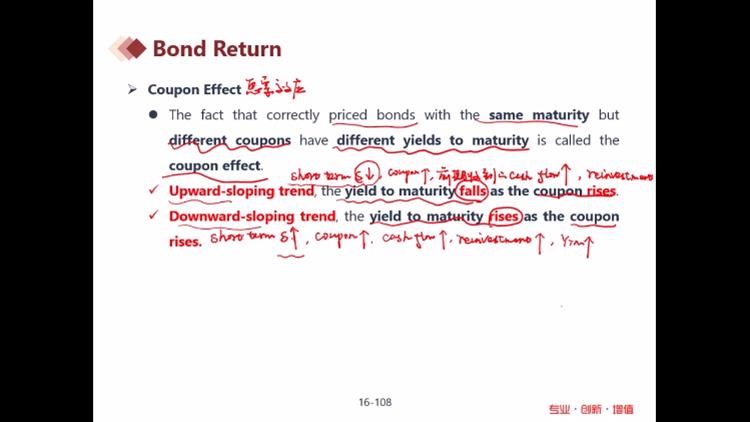 Bond Return
➢ Coupon Effect 息票效应
● The fact that correctly priced bonds with the same maturity but
different coupons have different yields to maturity is called the
coupon effect.
short term S↓, coupon↑, 前期收到 cash flow↑, reinvestment
✓ Upward-sloping trend, the yield to maturity falls as the coupon rises.
✓ Downward-sloping trend, the yield to maturity rises as the coupon
rises. short term S↑, coupon↑. cash flow↑, reinvestment↑, YTM↑
16-108
专业·创新·增值